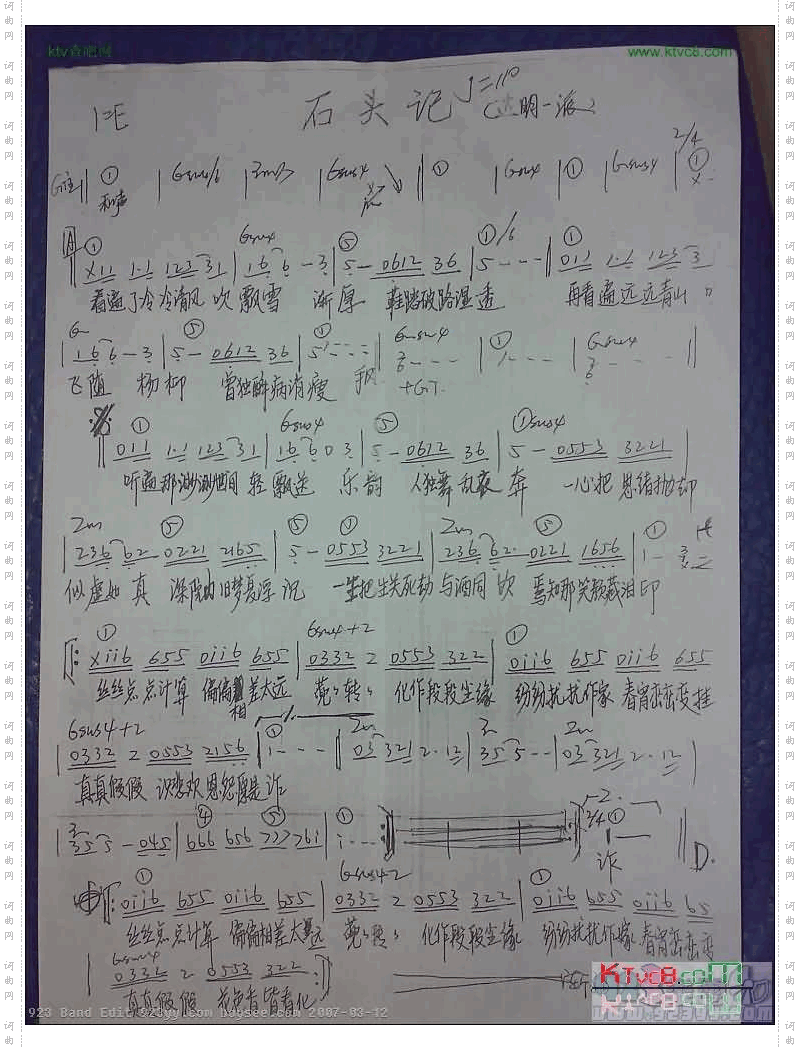 ktv喜吧网 www.ktvc8.com
石头记 J=110
1=E (达明一派)
G吉 ① Gsus4/6 2m7 Gsus4 ① Gsus4 ① Gsus4 2/4 ①
和声
A ① Gsus4 ⑤ ①/6 ①
x11 1·1 123 31 | 16 6 - 3 | 5 - 0612 36 | 5 - - - | 011 1·1 123 3
看遍了冷冷清风 吹飘雪 渐厚 鞋踏破路湿透 再看遍远远青山
⑤ ① Gsus4 ① Gsus4
166 - 3 | 5 - 0612 36 | 5 - - -
飞随 杨柳 曾独醉病消瘦 +GT.
① Gsus4 ⑤ ①sus4
011 1·1 123 31 | 16 6 0 3 | 5 - 0612 36 | 5 - 0553 3221 |
听遍那渺渺世间 轻飘送 乐韵 人独舞乱衣奔 一心把思绪抛却
2m ⑤ ⑤ ① 2m ⑤ ①
236 62 0221 2165 | 5 - 0553 3221 | 236 62· 0221 1656 | 1 -
似虚如真 深院内旧梦复浮沉 一生把生关死劫与酒同饮 焉知那笑靥藏泪印
① Gsus4+2 ①
xii6 655 0ii6 655 | 0332 2 0553 322 | 0ii6 655 0ii6 655
丝丝点点计算 偏偏相差太远 兜兜转转 化作段段尘缘 纷纷扰扰作嫁 春宵恋恋变挂
Gsus4+2 ① 2m 3m 2m
0332 2 0553 2156 | 1 - - - | 03 321 2· 12 | 35 5 - - | 03 321 2· 12 |
真真假假 识悲欢恩怨原是诈
④ ⑤ ① 2.
355 - 045 | 666 656 777 761 | i - - - 3/4 ①
诈 D.
① Gsus4 2 ①
0ii6 655 0ii6 655 | 0332 2 0553 322 | 0ii6 655 0ii6 65
丝丝点点计算 偏偏相差太远 兜兜转转 化作段段尘缘 纷纷扰扰作嫁 春宵恋恋变
Gsus4
0332 2 0553 322
真真假假 花色香皆看化
KTvc8.com
KTvc8.com
www.923yy.com
923 Band Edit 923yy.com Daysee.com 2007-03-12
词曲网